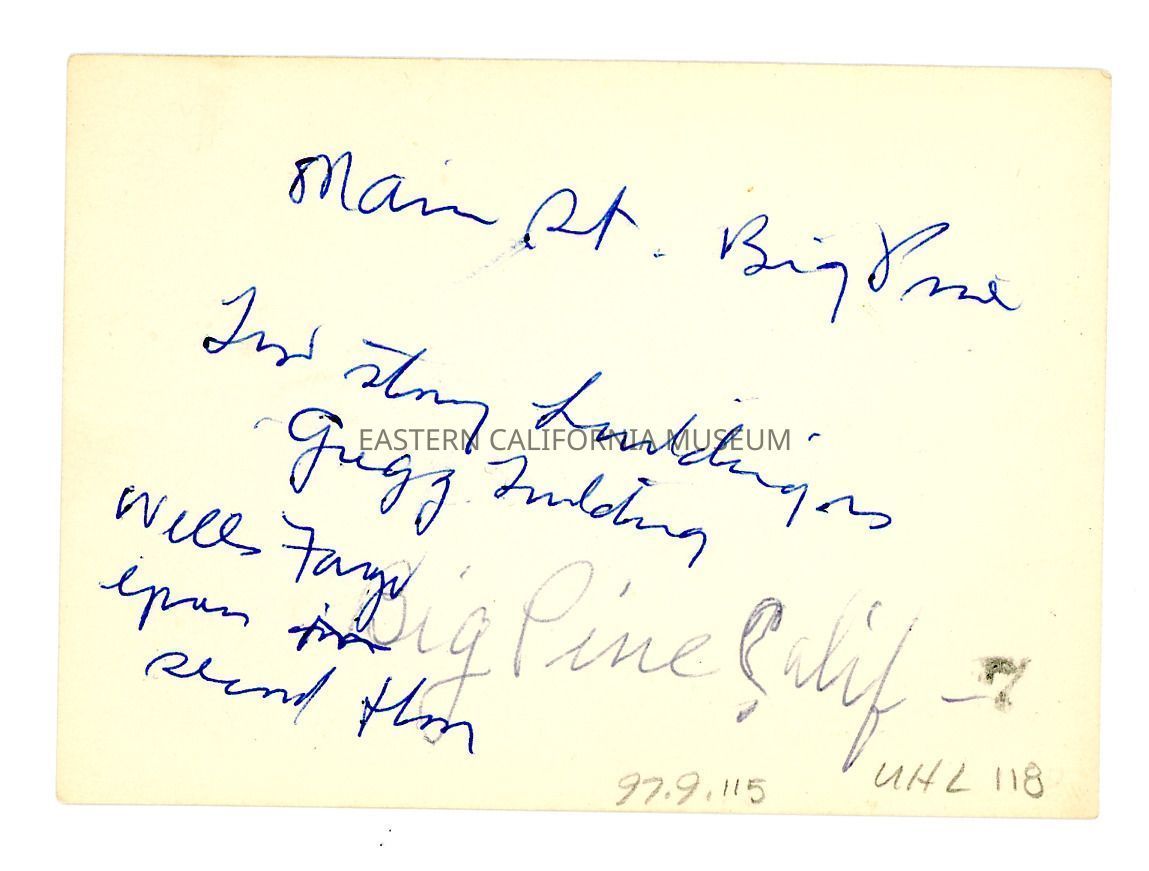 Main St. Big Pine
Two story building is
Gregg Building
EASTERN CALIFORNIA MUSEUM
Wells Fargo
second floor
Big Pine Calif -
97.9.115
UHL 118